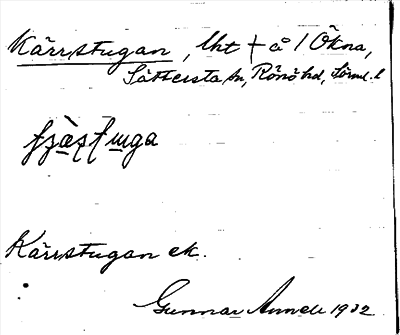 Kärrstugan, lht † å / Ökna,
Sättersta sn, Rönö hd, Sörml. l
Kärrstugan ek.
Gunnar 1932